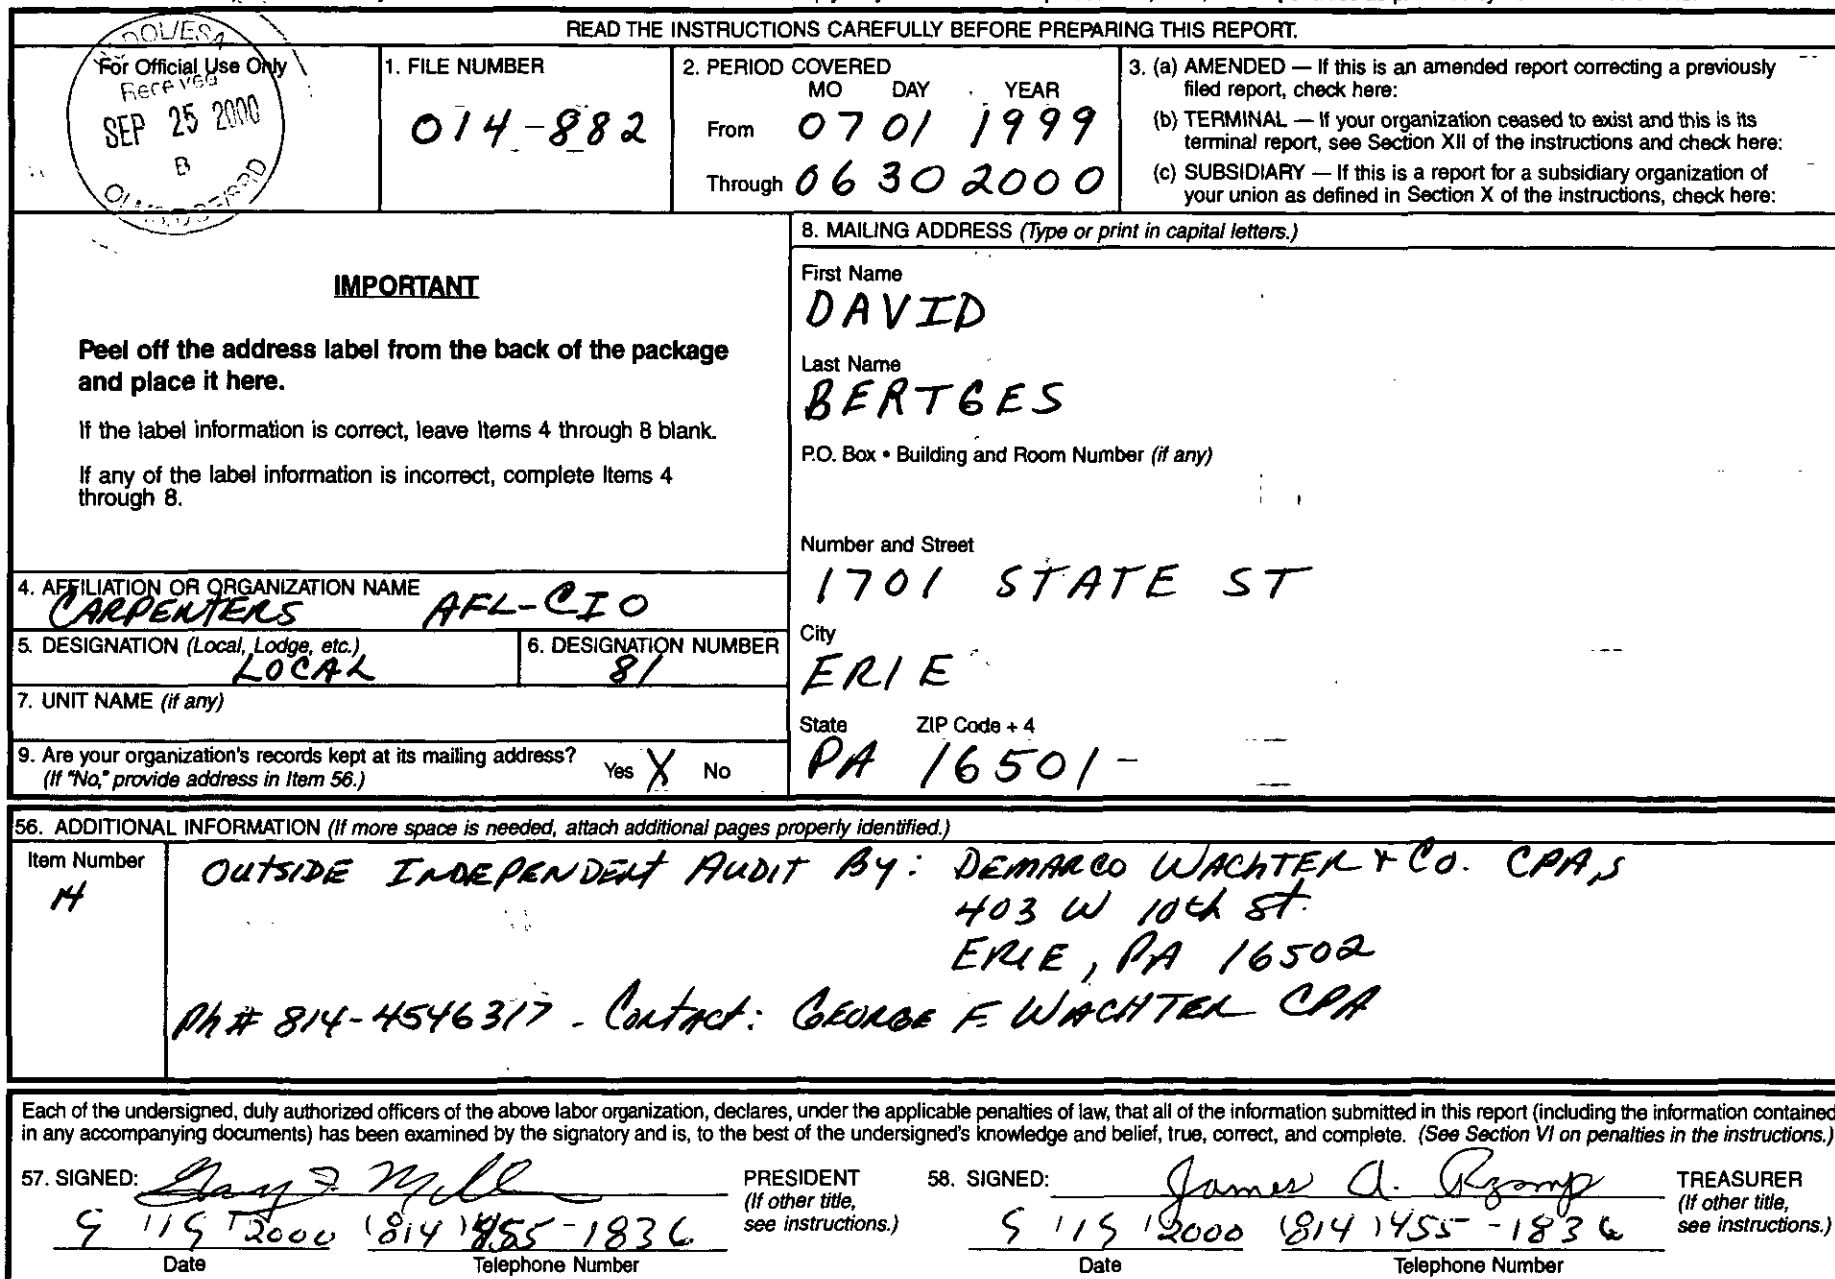 READ THE INSTRUCTIONS CAREFULLY BEFORE PREPARING THIS REPORT.
DOL/ESA
For Official Use Only
Received
SEP 25 2000
B
1. FILE NUMBER
014-882
2. PERIOD COVERED
MO DAY YEAR
From 07 01 1999
Through 06 30 2000
3. (a) AMENDED — If this is an amended report correcting a previously
filed report, check here:
(b) TERMINAL — If your organization ceased to exist and this is its
terminal report, see Section XII of the instructions and check here:
(c) SUBSIDIARY — If this is a report for a subsidiary organization of
your union as defined in Section X of the instructions, check here:
IMPORTANT
Peel off the address label from the back of the package
and place it here.
If the label information is correct, leave Items 4 through 8 blank.
If any of the label information is incorrect, complete Items 4
through 8.
4. AFFILIATION OR ORGANIZATION NAME
CARPENTERS AFL-CIO
5. DESIGNATION (Local, Lodge, etc.)
LOCAL
6. DESIGNATION NUMBER
81
7. UNIT NAME (if any)
9. Are your organization's records kept at its mailing address?
(If "No," provide address in Item 56.)
Yes X No
8. MAILING ADDRESS (Type or print in capital letters.)
First Name
DAVID
Last Name
BERTGES
P.O. Box • Building and Room Number (if any)
Number and Street
1701 STATE ST
City
ERIE
State ZIP Code + 4
PA 16501-
56. ADDITIONAL INFORMATION (If more space is needed, attach additional pages properly identified.)
Item Number
14
OUTSIDE INDEPENDENT AUDIT BY: DEMARCO WACHTER & CO. CPA,s
403 W 10th St.
ERIE, PA 16502
Ph# 814-4546317 - Contact: GEORGE F. WACHTER CPA
Each of the undersigned, duly authorized officers of the above labor organization, declares, under the applicable penalties of law, that all of the information submitted in this report (including the information contained
in any accompanying documents) has been examined by the signatory and is, to the best of the undersigned's knowledge and belief, true, correct, and complete. (See Section VI on penalties in the instructions.)
57. SIGNED: Gary F. Mill
PRESIDENT
(If other title,
see instructions.)
9 / 15 / 2000 (814) 455-1836
Date Telephone Number
58. SIGNED: James A. Rzomp
TREASURER
(If other title,
see instructions.)
9 / 15 / 2000 (814) 455-1836
Date Telephone Number